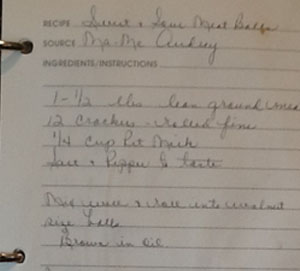 RECIPE Sweet + Sour Meat Balls
SOURCE Ma-Mc Audrey
INGREDIENTS/INSTRUCTIONS
1-1/2 lbs lean ground
12 crackers - rolled fine
1/4 cup Pet Milk
Salt + Pepper to taste
Mix well + roll into walnut
size balls
Brown in oil